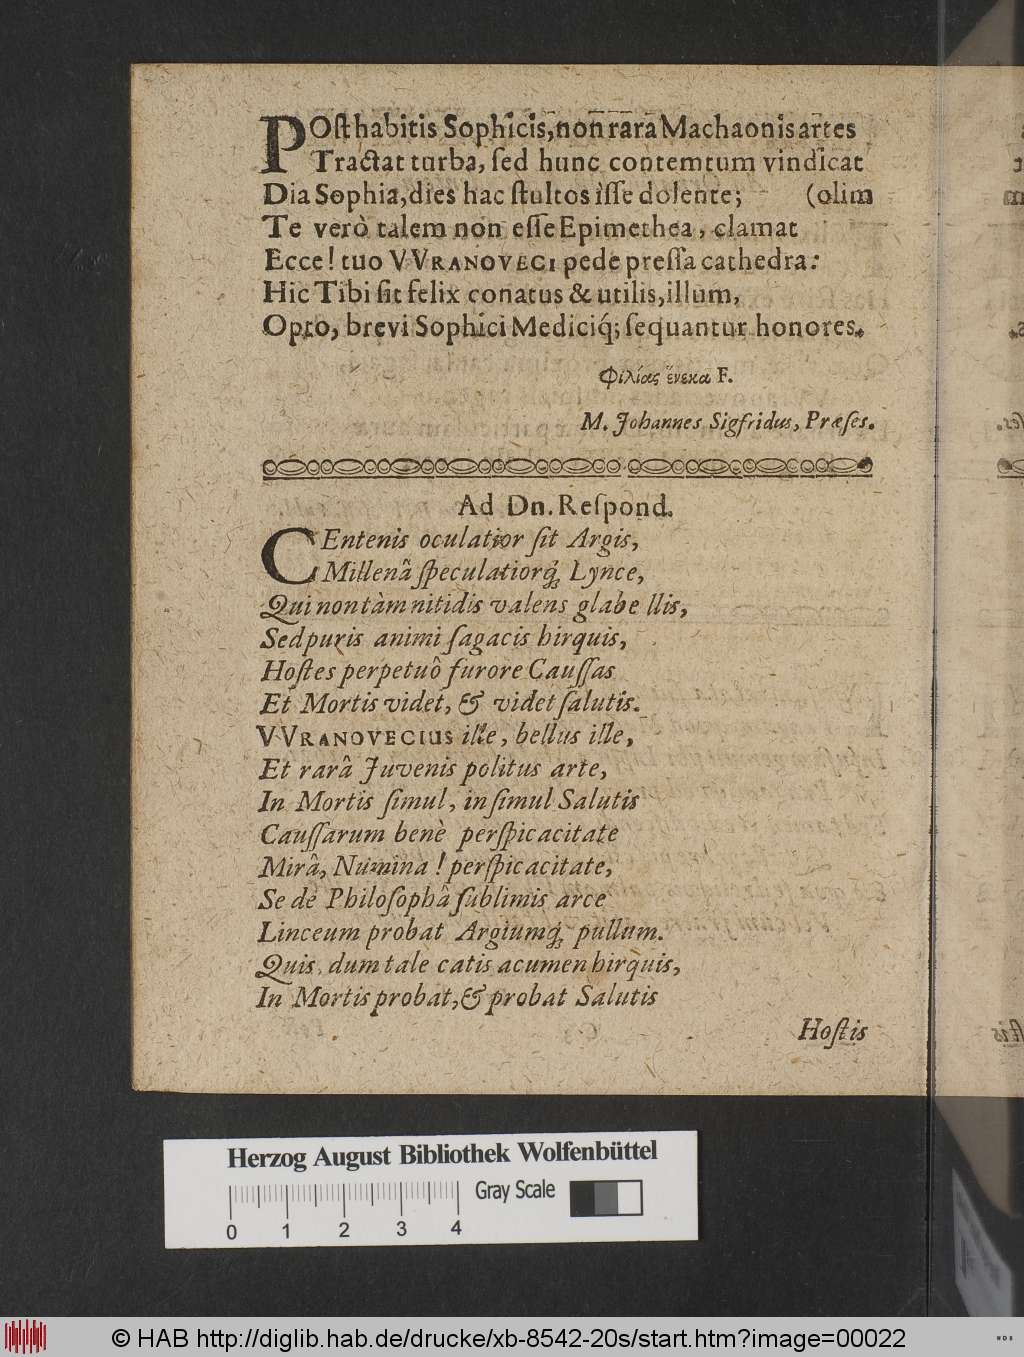 POſthabitis Sophicis, non rara Machaonis artes
Tractat turba, ſed hunc contemtum vindicat
Dia Sophia, dies hac ſtultos iſſe dolente; (olim
Te verò talem non eſſe Epimethea, clamat
Ecce! tuo VVRANOVECI pede preſſa cathedra:
Hic Tibi ſit felix conatus & utilis, illum,
Opto, brevi Sophici Mediciq́; ſequantur honores.
Φιλίας ἕνεκα F.
M. Johannes Sigfridus, Præſes.
Ad Dn. Reſpond.
CEntenis oculatior ſit Argis,
Millenâ ſpeculatiorq́; Lynce,
Qui non tàm nitidis valens glabe llis,
Sed puris animi ſagacis hirquis,
Hoſtes perpetuô furore Cauſſas
Et Mortis videt, & videt ſalutis.
VVRANOVECIUS ille, bellus ille,
Et rarâ Juvenis politus arte,
In Mortis ſimul, in ſimul Salutis
Cauſſarum benè perſpicacitate
Mirâ, Numina! perſpicacitate,
Se de Philoſophâ ſublimis arce
Linceum probat Argiumq́; pullum.
Quis, dum tale catis acumen hirquis,
In Mortis probat, & probat Salutis
Hoſtis
Herzog August Bibliothek Wolfenbüttel
Gray Scale
0 1 2 3 4
© HAB http://diglib.hab.de/drucke/xb-8542-20s/start.htm?image=00022